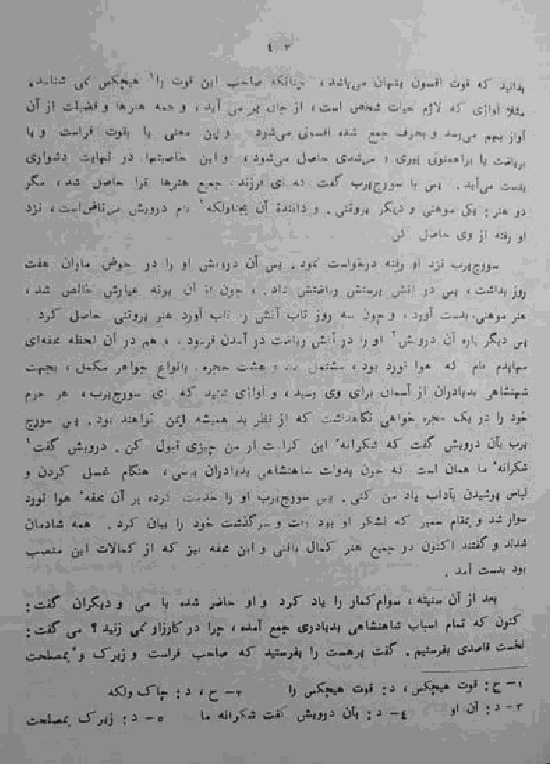 بدانید که قوت افسون پنهان می‌باشد، چنانکه صاحب این قوت را¹ هیچکس نمی شناسد.
مثلا آوازی که لازم حیات شخص است، از جان بر می آید، و همه هنرها و فضیلت از آن
آواز بهم می‌رسد و بحرف جمع شده افسونی می‌شود و این معنی یا بقوت فراست و یا
بریاضت یا براهمنونی پیری و مرشدی حاصل می‌شود، و این خاصیتها در نهایت دشواری
بدست می‌آید. پس با سورج‌پرب گفت که ای فرزند، جمیع هنرها ترا حاصل شد، مگر
دو هنر: یکی موهنی و دیگر پروتنی. و دانندهٔ آن نام درویش مرتاض‌است، نزد
او رفته از وی حاصل کن
سورج‌پرب نزد او رفته درخواست نمود. پس آن درویش او را در حوض ماران هفت
روز بداشت، پس در آتش پرستش ریاضتش داد. چون از آن بوته عیارش خالص شد،
هنر موهنی بدست آورد، و چون سه روز تاب آتش را تاب آورد هنر پروتنی حاصل کرد.
پس دیگر باره آن درویش³ او را در آتش ریاضت در آمدن فرمود، و هم در آن لحظه محفه‌ای
نام که هوا نورد بود، مشتمل هشت حجره، بانواع جواهر مکمل، بجهت
شهنشاهی بدیادران از آسمان برای وی رسید، و آوازی شنید که ای سورج‌پرب، هر حرم
خود را در یک حجره خواهی نگاهداشت که از نظر بد همیشه ایمن خواهند بود. پس سورج
پرب بآن درویش گفت که شکرانهٔ این کرامت از من چیزی قبول کن. درویش گفت⁴
شکرانهٔ ما همان است که چون بدولت شاهنشاهی بدیادران برسی، هنگام غسل کردن و
لباس پوشیدن بآداب یاد من کنی. پس سورج‌پرب او را خدمت کرده بر آن محفهٔ هوا نورد
سوار شد و بمقام سمیر که لشکر او بود رفت و سرگذشت خود را بیان کرد. همه شادمان
شدند و گفتند اکنون در جمیع هنر کمال یافتی و این محفه نیز که از کمالات این منصب
بود بدست آمد.
بعد از آن سنیته، سوام‌کمار را یاد کرد و او حاضر شده با می و دیگران گفت:
کنون که تمام اسباب شاهنشاهی بدیادری جمع آمده، چرا در کارزار نمی زنید؟ می گفت:
نخست قاصدی بفرستیم. گفت پرهست را بفرستید که صاحب فراست و زیرک و⁵ بمصلحت
۱- ح: قوت هیچکس، د: قوت هیچکس را ۲- ح، د: چاک ولکه
۳- د: آن او ۴- د: بآن درویش گفت شکرانه ما ۵- د: زیرک بمصلحت